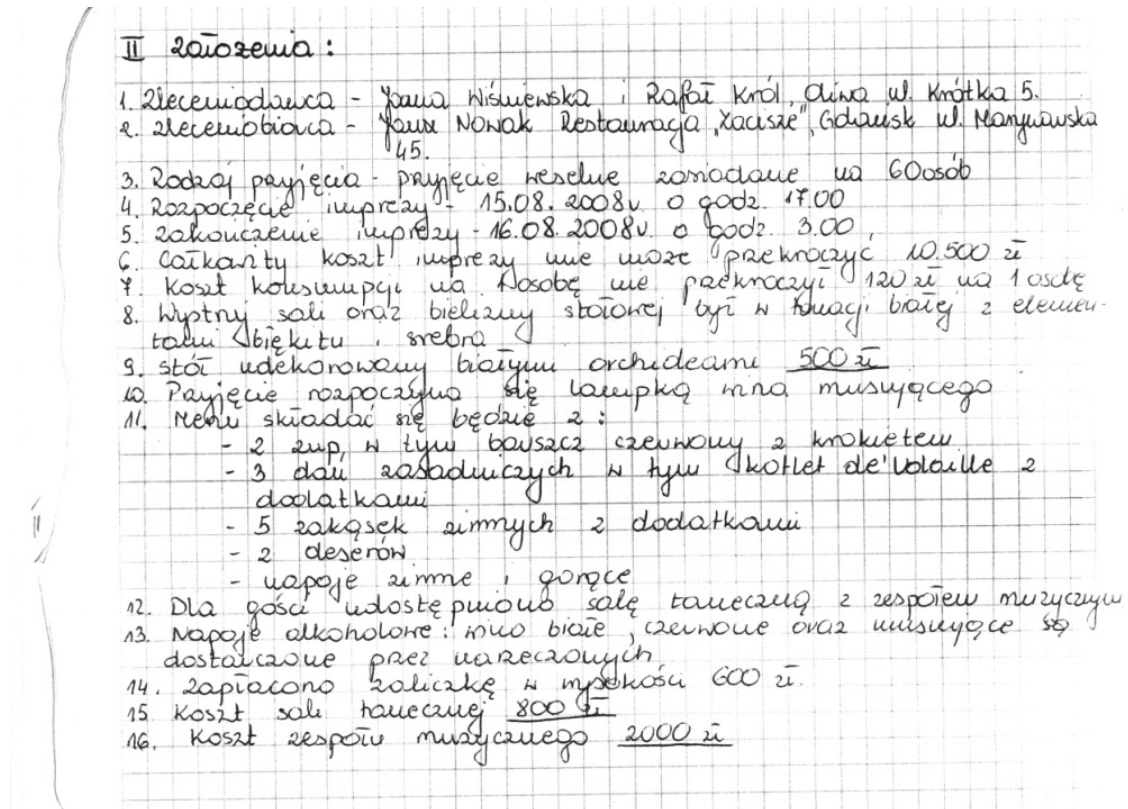 II Założenia :
1. Zleceniodawca - Joanna Wiśniewska i Rafał Król, Oliwa ul. Krótka 5.
2. Zleceniobiorca - Joanna Nowak Restauracja "Zacisze", Gdańsk ul. Marynarska
45.
3. Rodzaj przyjęcia - przyjęcie weselne zasiadane na 60 osób
4. Rozpoczęcie imprezy - 15.08.2008r. o godz. 17.00
5. Zakończenie imprezy - 16.08.2008r. o godz. 3.00
6. Całkowity koszt imprezy nie może przekroczyć 10.500 zł
7. Koszt konsumpcji na 1 osobę nie przekroczył 120 zł na 1 osobę
8. Wystrój sali oraz bielizny stołowej był w tonacji białej z elemen-
tami błękitu i srebra
9. Stół udekorowany białymi orchideami 500 zł
10. Przyjęcie rozpoczyna się lampką wina musującego
11. Menu składać się będzie z :
- 2 zup, w tym barszcz czerwony z krokietem
- 3 dań zasadniczych w tym kotlet de'Volaille z
dodatkami
- 5 zakąsek zimnych z dodatkami
- 2 deserów
- napoje zimne i gorące
12. Dla gości udostępniono salę taneczną z zespołem muzycznym
13. Napoje alkoholowe : wino białe, czerwone oraz musujące są
dostarczone przez narzeczonych
14. Zapłacono zaliczkę w wysokości 600 zł.
15 Koszt sali tanecznej 800 zł
16. Koszt zespołu muzycznego 2000 zł
II